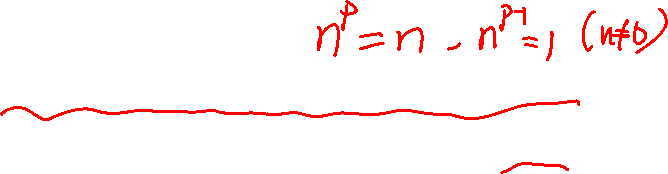 n^p = n - n^{p-1} = 1 (n≠0)